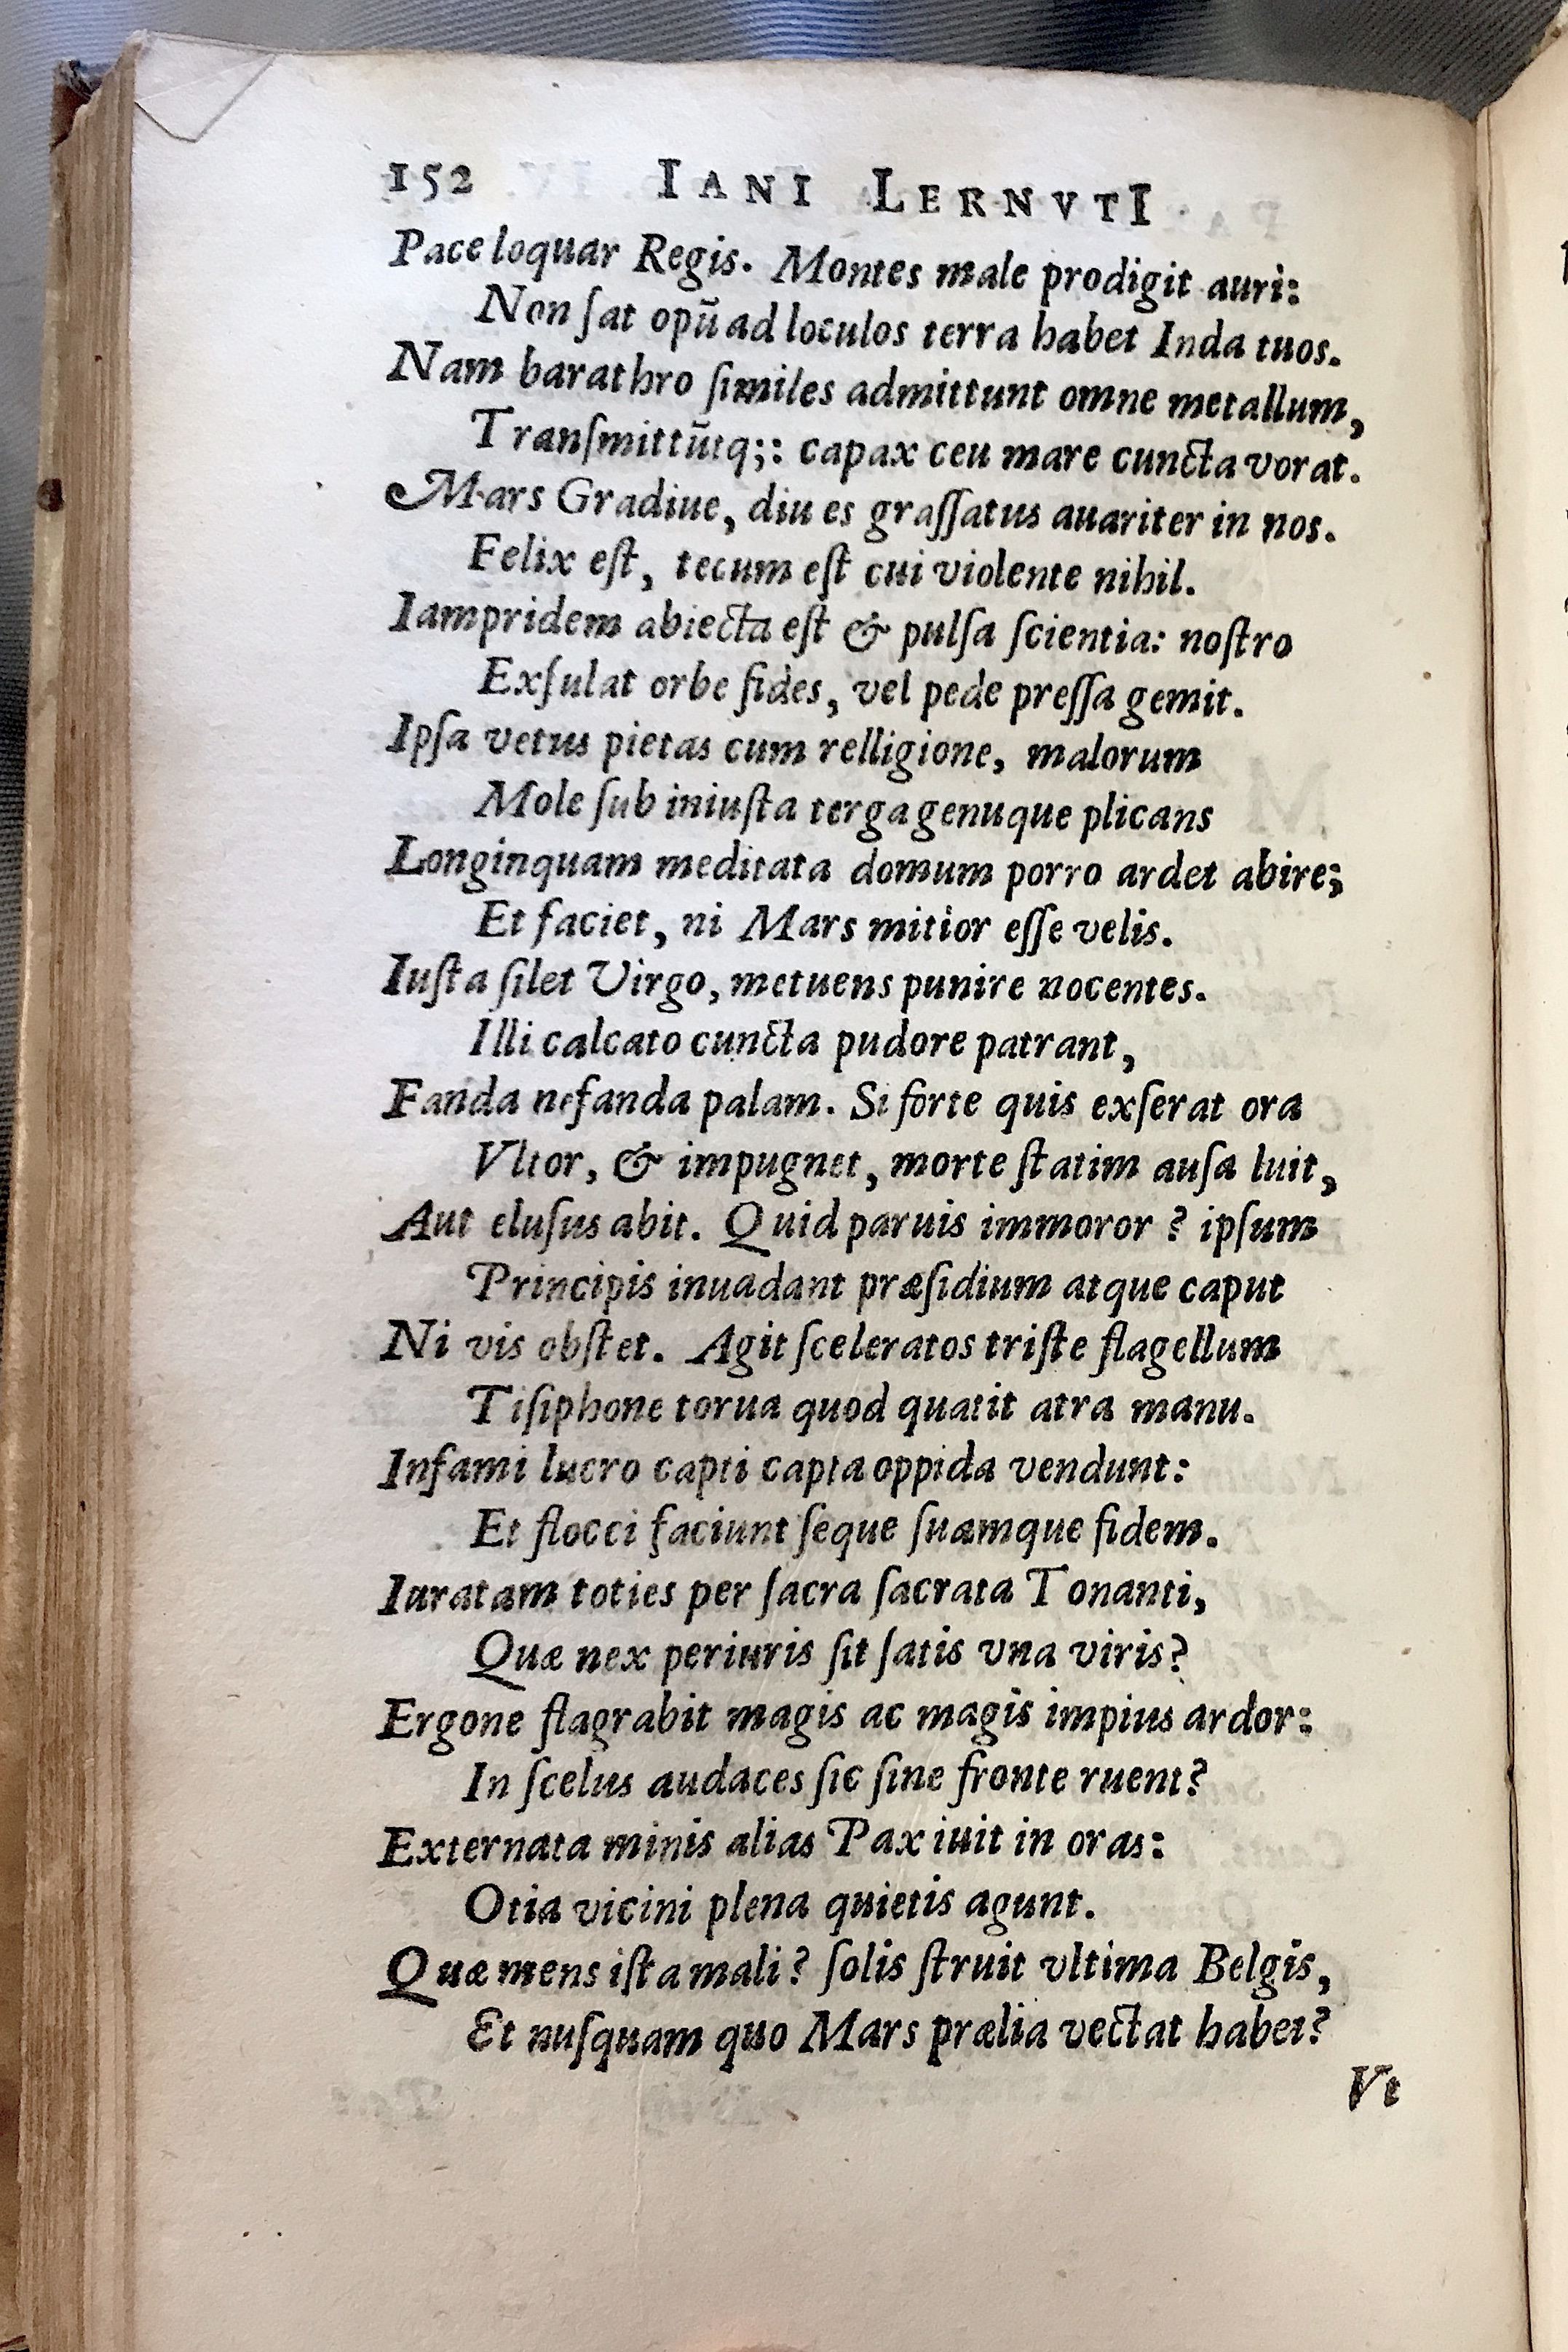 152 IANI LERNVTI
Pace loquar Regis. Montes male prodigit auri:
Non ſat opũ ad loculos terra habet Inda tuos.
Nam barathro ſimiles admittunt omne metallum,
Tranſmittũtq;: capax ceu mare cuncta vorat.
Mars Gradiue, diu es graſſatus auariter in nos.
Felix eſt, tecum eſt cui violente nihil.
Iampridem abiecta eſt & pulſa ſcientia: noſtro
Exſulat orbe fides, vel pede preſſa gemit.
Ipſa vetus pietas cum relligione, malorum
Mole ſub iniuſta terga genuque plicans
Longinquam meditata domum porro ardet abire;
Et faciet, ni Mars mitior eſſe velis.
Iuſta ſilet Virgo, metuens punire nocentes.
Illi calcato cuncta pudore patrant,
Fanda nefanda palam. Si forte quis exſerat ora
Vltor, & impugnet, morte ſtatim auſa luit,
Aut eluſus abit. Quid paruis immoror? ipſum
Principis inuadant præſidium atque caput
Ni vis obſtet. Agit ſceleratos triſte flagellum
Tiſiphone torua quod quatit atra manu.
Infami lucro capti capta oppida vendunt:
Et flocci faciunt ſeque ſuamque fidem.
Iuratam toties per ſacra ſacrata Tonanti,
Quæ nex periuris ſit ſatis vna viris?
Ergone flagrabit magis ac magis impius ardor:
In ſcelus audaces ſic ſine fronte ruent?
Externata minis alias Pax iuit in oras:
Otia vicini plena quietis agunt.
Quæ mens iſta mali? ſolis ſtruit vltima Belgis,
Et nuſquam quo Mars prælia vectat habet?
Vt